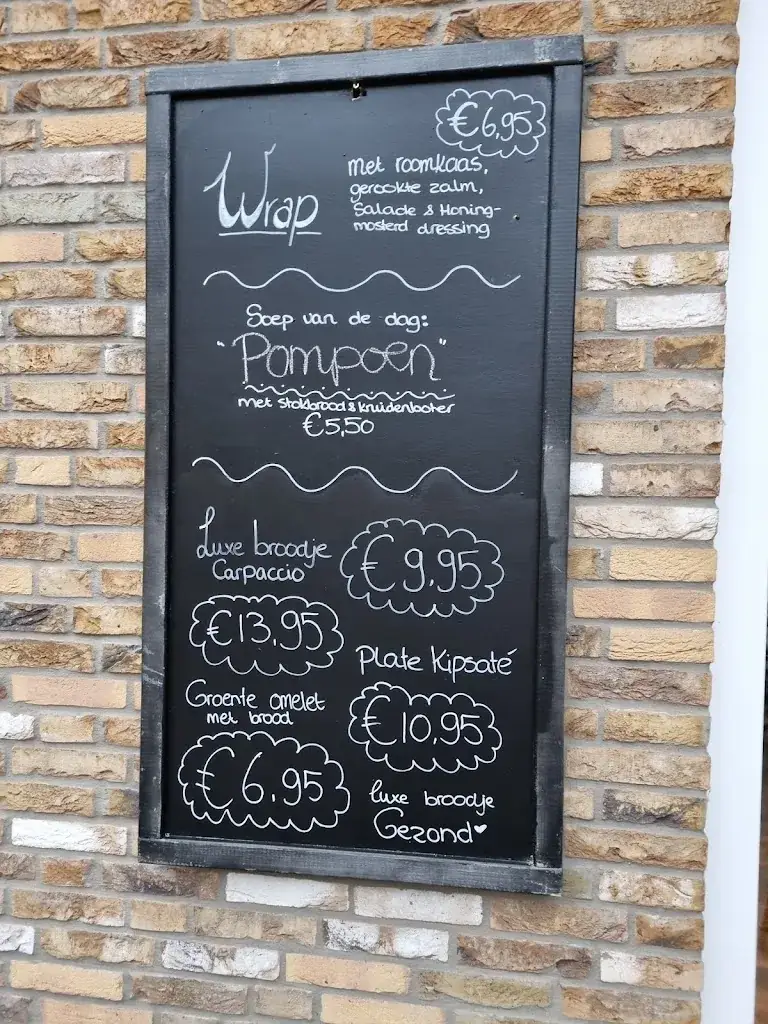 €6,95
Wrap
met roomkaas,
gerookte zalm,
Salade & Honing-
mosterd dressing
Soep van de dag:
"Pompoen"
met stokbrood & kruidenboter
€5,50
Luxe broodje
Carpaccio
€9,95
€13,95
Plate Kipsaté
Groente omelet
met brood
€10,95
€6,95
luxe broodje
Gezond♥